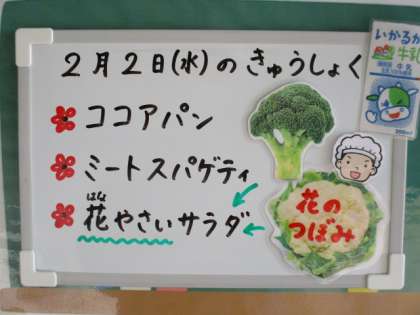 2月2日(水)のきゅうしょく
ココアパン
ミートスパゲティ
はな
花やさいサラダ
花の
つぼみ
いかるが
牛乳